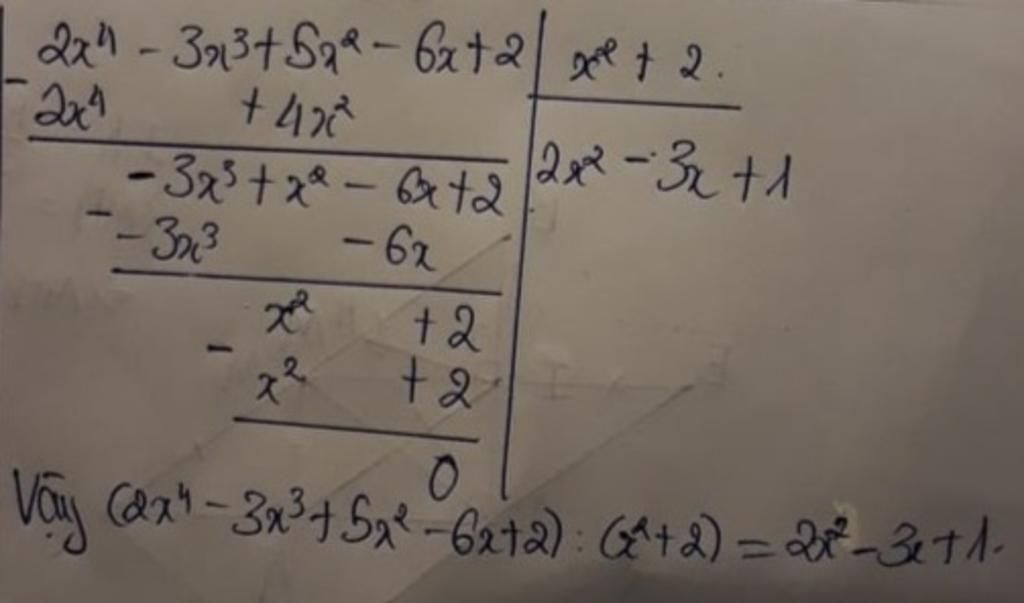 2x⁴ - 3x³ + 5x² - 6x + 2 | x² + 2.
-
2x⁴ + 4x²
2x² - 3x + 1
- 3x³ + x² - 6x + 2
-
- 3x³ - 6x
x² + 2
-
x² + 2
0
Vậy (2x⁴ - 3x³ + 5x² - 6x + 2) : (x² + 2) = 2x² - 3x + 1.